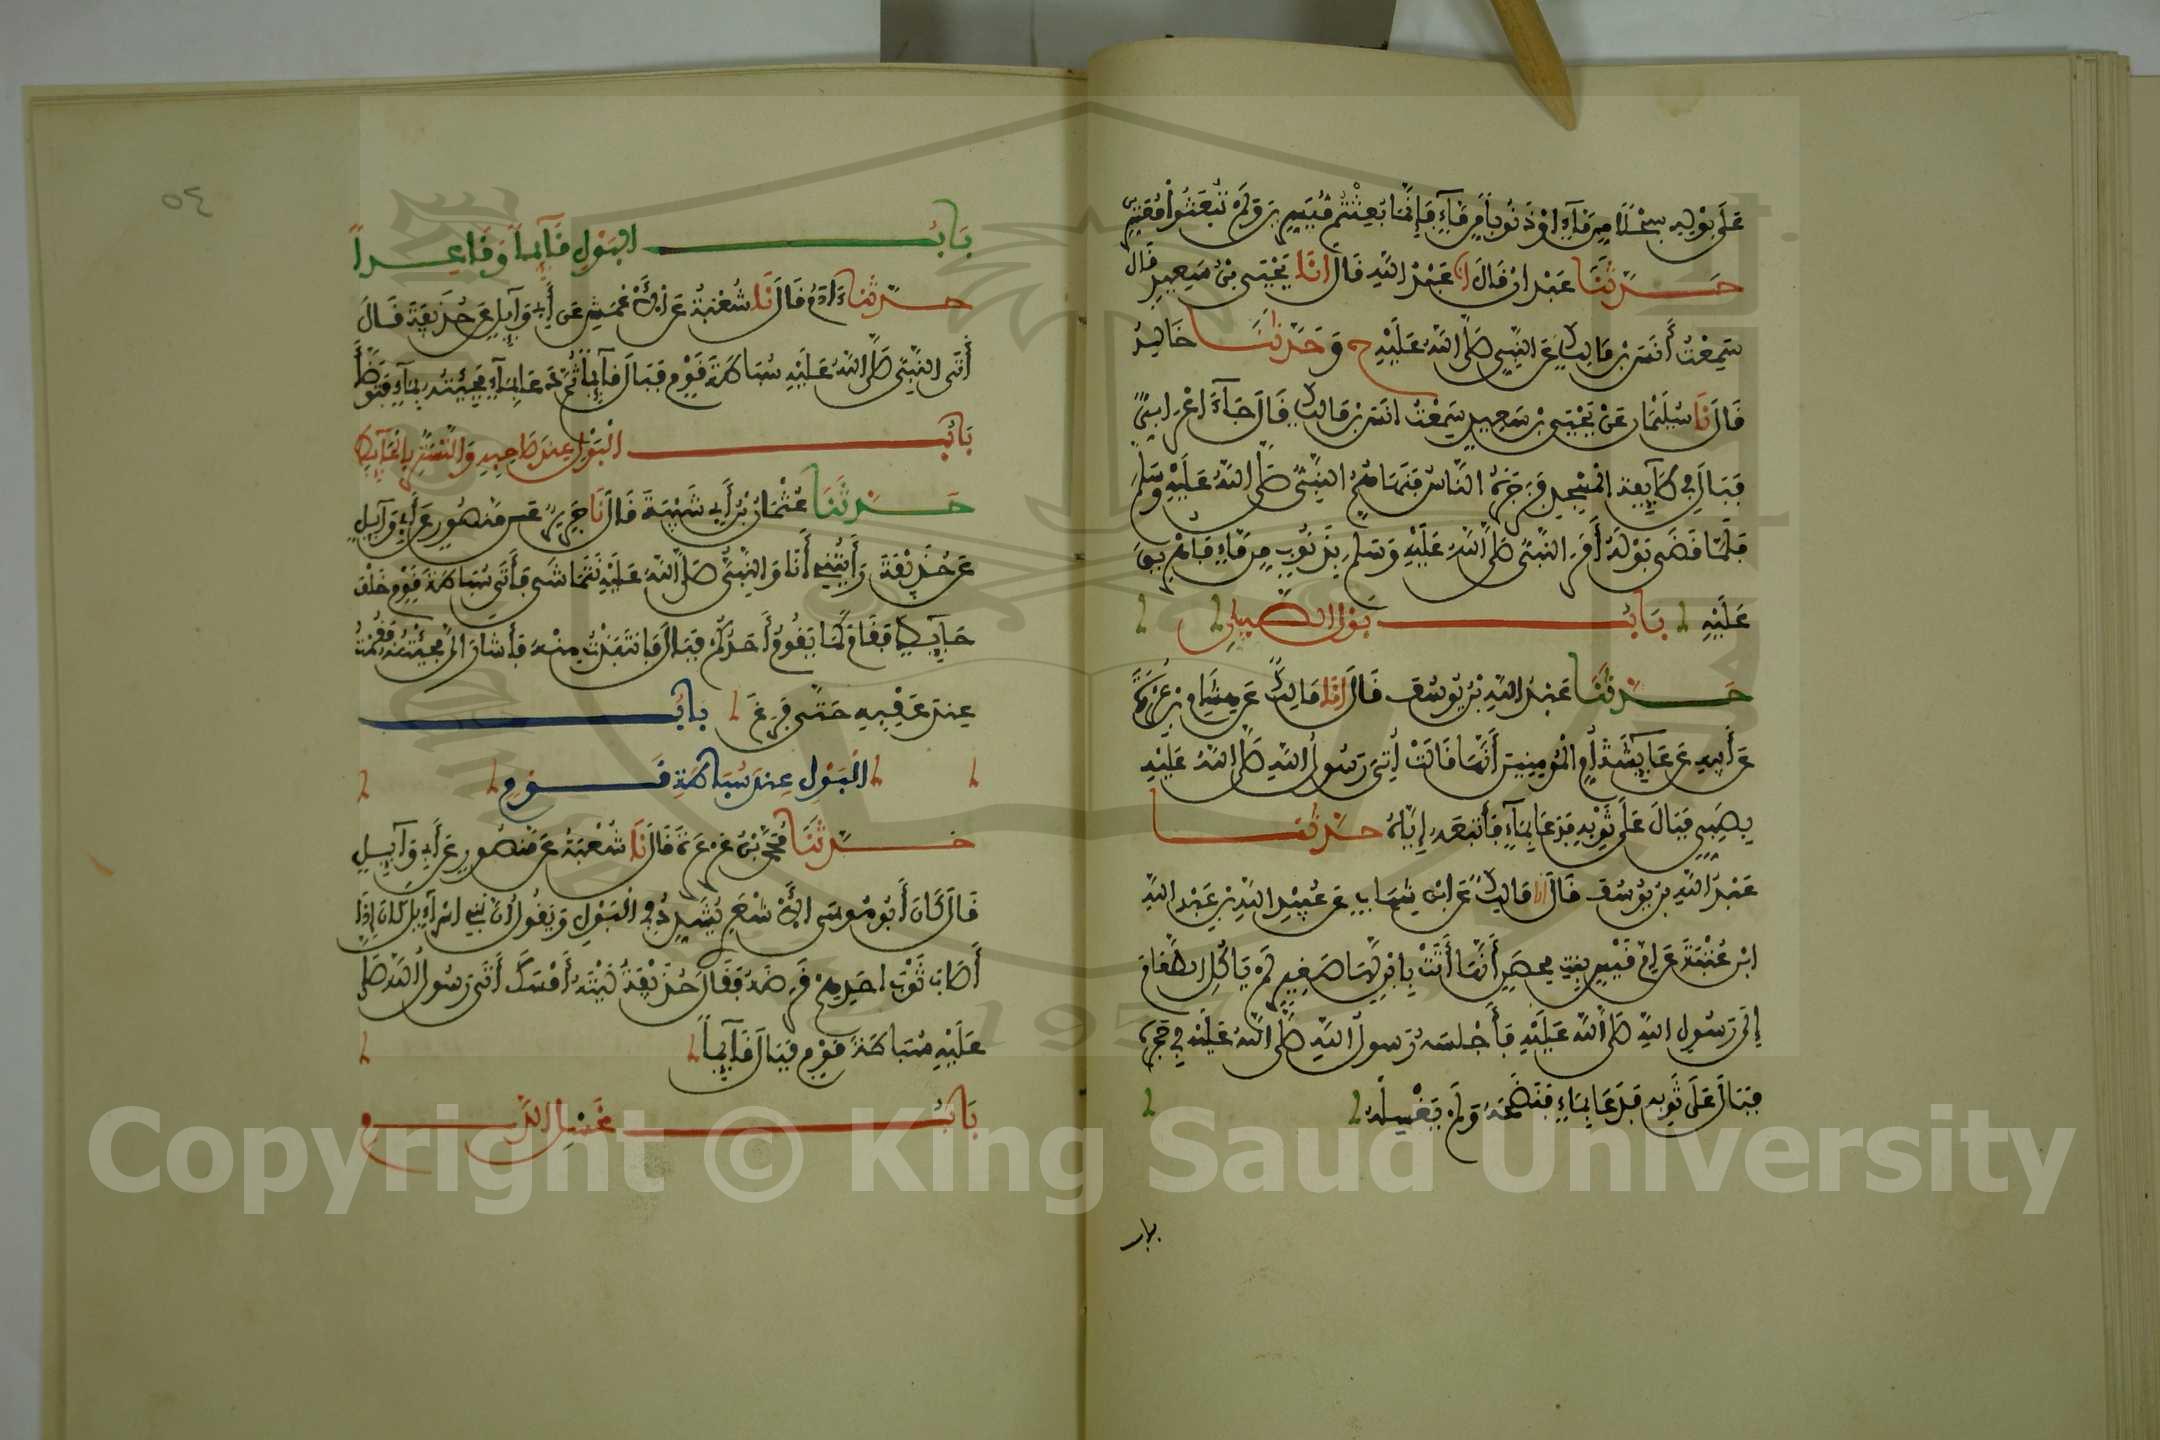 عَلَى بَوْلِهِ سَجْلًا مِن مَّاءٍ اوْ ذَنُوباً مِن مَّاءٍ فَإِنَّمَا بُعِثْتُم مُّيَسِّرِينَ وَلَمْ تُبْعَثُوا مُعَسِّرِينَ
حَدَّثَنَا عَبْدَانُ قَالَ انَا عَبْدُ اللهِ قَالَ انَا يَحْيَى بْنُ سَعِيدٍ قَالَ
سَمِعْتُ أَنَسَ بْنَ مَالِكٍ عَنِ النَّبِيِّ صَلَّى اللهُ عَلَيْهِ ح وَحَدَّثَنَا خَالِدُ
قَالَ نَا سُلَيْمَانُ عَنْ يَحْيَى بْنِ سَعِيدٍ سَمِعْتُ انَسَ بْنَ مَالِكٍ قَالَ جَآءَ اعْرَابِيٌّ
فَبَالَ فِي طَآيِفَةِ الْمَسْجِدِ فَزَجَرَهُ النَّاسُ فَنَهَاهُمُ النَّبِيُّ صَلَّى اللهُ عَلَيْهِ وَسَلَّمَ
فَلَمَّا قَضَى بَوْلَهُ أَمَرَ النَّبِيُّ صَلَّى اللهُ عَلَيْهِ وَسَلَّمَ بِذَنُوبٍ مِن مَّاءٍ فَأُهْرِيقَ
عَلَيْهِ بَابُ بَوْلِ الصِّبْيَانِ
حَدَّثَنَا عَبْدُ اللهِ بْنُ يُوسُفَ قَالَ انَا مَالِكٌ عَن هِشَامِ بْنِ عُرْوَةَ
عَن أَبِيهِ عَن عَآيِشَةَ أُمِّ الْمُومِنِينَ أَنَّهَا قَالَتْ أُتِيَ رَسُولُ اللهِ صَلَّى اللهُ عَلَيْهِ
بِصَبِيٍّ فَبَالَ عَلَى ثَوْبِهِ فَدَعَا بِمَاءٍ فَأَتْبَعَهُ إِيَّاهُ حَدَّثَنَا
عَبْدُ اللهِ بْنُ يُوسُفَ قَالَ انَا مَالِكٌ عَنِ ابْنِ شِهَابٍ عَن عُبَيْدِ اللهِ بْنِ عَبْدِ اللهِ
ابْنِ عُتْبَةَ عَن امِّ قَيْسٍ بِنْتِ مِحْصَنٍ أَنَّهَا أَتَتْ بِابْنٍ لَّهَا صَغِيرٍ لَمْ يَاكُلِ الطَّعَامَ
إِلَى رَسُولِ اللهِ صَلَّى اللهُ عَلَيْهِ فَأَجْلَسَهُ رَسُولُ اللهِ صَلَّى اللهُ عَلَيْهِ فِي حَجْرِهِ
فَبَالَ عَلَى ثَوْبِهِ فَدَعَا بِمَاءٍ فَنَضَحَهُ وَلَمْ يَغْسِلْهُ
باب
٥٤
بَابُ الْبَوْلِ قَآيِماً وَقَاعِداً
حَدَّثَنَا ءَادَمُ قَالَ نَا شُعْبَةُ عَنِ الأَعْمَشِ عَن أَبِي وَآيِلٍ عَن حُذَيْفَةَ قَالَ
أَتَى النَّبِيُّ صَلَّى اللهُ عَلَيْهِ سُبَاطَةَ قَوْمٍ فَبَالَ قَآيِماً ثُمَّ دَعَا بِمَآءٍ فَجِئْتُهُ بِمَآءٍ فَتَوَضَّأَ
بَابُ الْبَوْلِ عِندَ صَاحِبِهِ وَالتَّسَتُّرِ بِالْحَآيِطِ
حَدَّثَنَا عُثْمَانُ بْنُ أَبِي شَيْبَةَ قَالَ نَا جَرِيرٌ عَن مَنْصُورٍ عَن أَبِي وَآيِلٍ
عَن حُذَيْفَةَ رَأَيْتُنِي أَنَا وَالنَّبِيُّ صَلَّى اللهُ عَلَيْهِ نَتَمَاشَى فَأَتَى سُبَاطَةَ قَوْمٍ خَلْفَ
حَآيِطٍ فَقَامَ كَمَا يَقُومُ أَحَدُكُمْ فَبَالَ فَانتَبَذْتُ مِنْهُ فَأَشَارَ الَيَّ فَجِئْتُهُ فَقُمْتُ
عِندَ عَقِبِهِ حَتَّى فَرَغَ بَابُ
الْبَوْلِ عِندَ سُبَاطَةِ قَوْمٍ
حَدَّثَنَا مُحَمَّدُ بْنُ عَرْعَرَةَ قَالَ نَا شُعْبَةُ عَن مَنصُورٍ عَن أَبِي وَآيِلٍ
قَالَ كَانَ أَبُو مُوسَى الأَشْعَرِي يُشَدِّدُ فِي الْبَوْلِ وَيَقُولُ انَّ بَنِي اسْرَآءِيلَ كَانَ إِذَا
أَصَابَ ثَوْبَ احَدِهِمْ قَرَضَهُ فَقَالَ حُذَيْفَةُ لَيْتَهُ أَمْسَكَ أَتَى رَسُولُ اللهِ صَلَّى
عَلَيْهِ سُبَاطَةَ قَوْمٍ فَبَالَ قَآيِماً
بَابُ غَسْلِ الدَّمِ
Copyright © King Saud University
1957